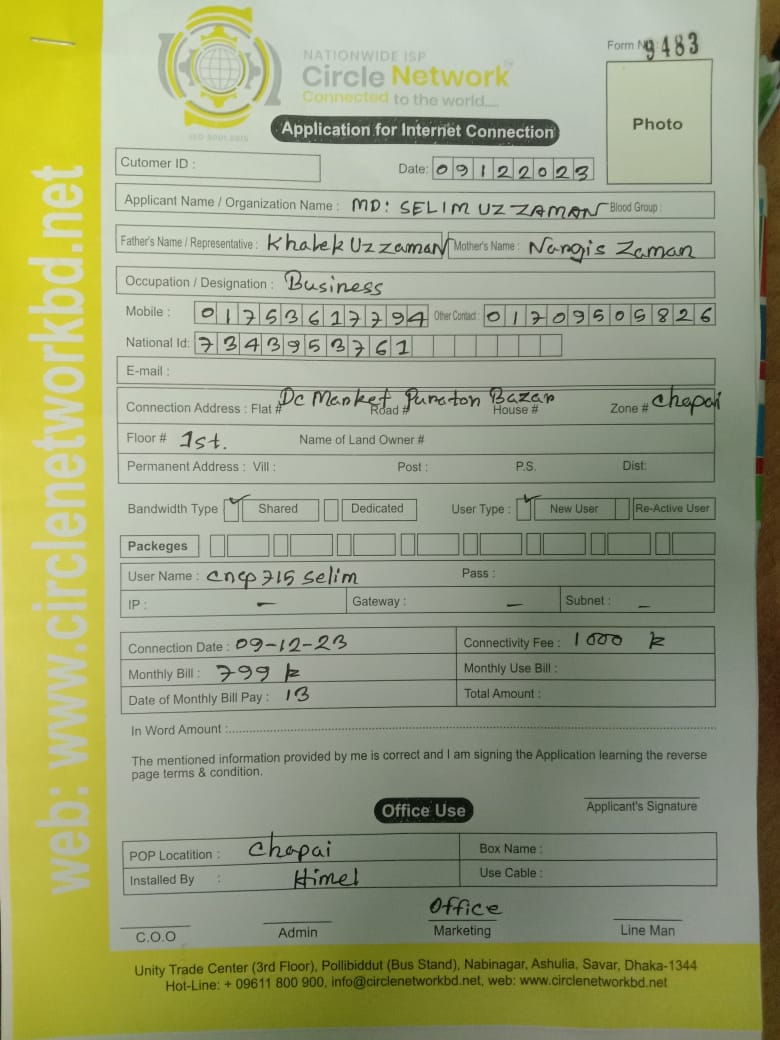 NATIONWIDE ISP
Circle Network
Connected to the world....
ISO 9001:2015
Form No 9483
Photo
Application for Internet Connection
Cutomer ID :
Date: 09122023
Applicant Name / Organization Name : MD: SELIM UZ ZAMAN Blood Group :
Father's Name / Representative : Khalek Uz zaman Mother's Name : Nargis Zaman
Occupation / Designation : Business
Mobile : 01753617794 Other Contact : 01709505826
National Id: 7343953761
E-mail :
Connection Address : Flat # Dc Market Puraton Bazar Road # House # Zone # Chapai
Floor # 1st. Name of Land Owner #
Permanent Address : Vill : Post : P.S. Dist:
Bandwidth Type ✓ Shared Dedicated User Type : ✓ New User Re-Active User
Packeges
User Name : cncp715 selim Pass :
IP : – Gateway : – Subnet : –
Connection Date : 09-12-23 Connectivity Fee : 1000 k
Monthly Bill : 799 k Monthly Use Bill :
Date of Monthly Bill Pay : 13 Total Amount :
In Word Amount :
The mentioned information provided by me is correct and I am signing the Application learning the reverse
page terms & condition.
Applicant's Signature
Office Use
POP Locatition : Chapai Box Name :
Installed By : Himel Use Cable :
Office
C.O.O Admin Marketing Line Man
Unity Trade Center (3rd Floor), Pollibiddut (Bus Stand), Nabinagar, Ashulia, Savar, Dhaka-1344
Hot-Line: + 09611 800 900, info@circlenetworkbd.net, web: www.circlenetworkbd.net
web: www.circlenetworkbd.net